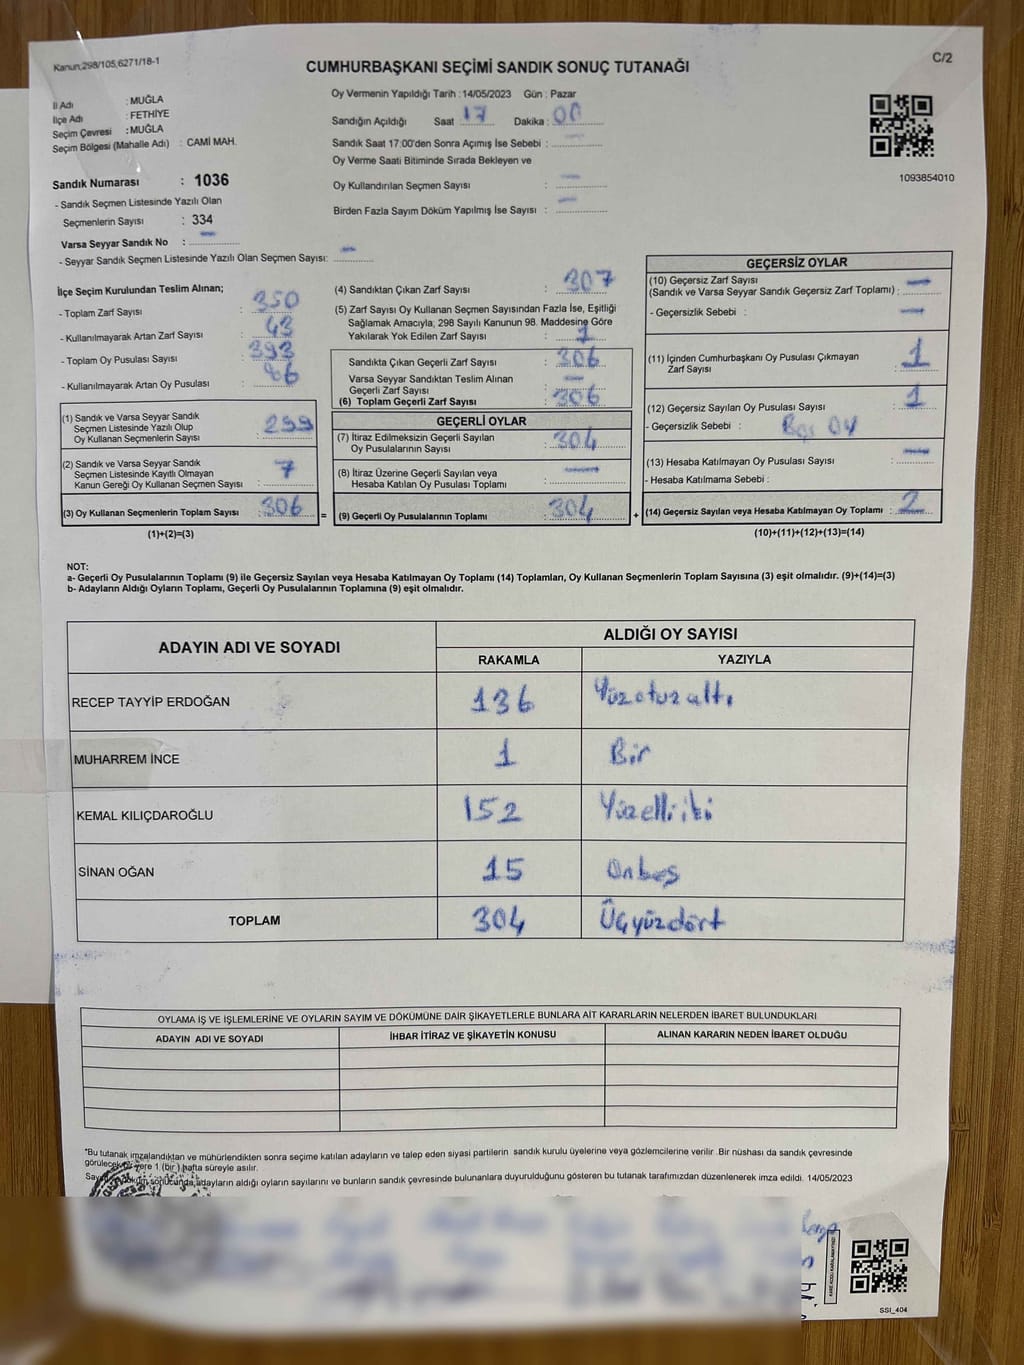 Kanun;298/105,6271/18-1
C/2
CUMHURBAŞKANI SEÇİMİ SANDIK SONUÇ TUTANAĞI
İl Adı : MUĞLA
İlçe Adı : FETHİYE
Seçim Çevresi : MUĞLA
Seçim Bölgesi (Mahalle Adı) : CAMİ MAH.
Sandık Numarası : 1036
- Sandık Seçmen Listesinde Yazılı Olan
Seçmenlerin Sayısı : 334
Varsa Seyyar Sandık No : —
- Seyyar Sandık Seçmen Listesinde Yazılı Olan Seçmen Sayısı: —
Oy Vermenin Yapıldığı Tarih : 14/05/2023 Gün : Pazar
Sandığın Açıldığı Saat 17 Dakika : 00
Sandık Saat 17:00'den Sonra Açımış İse Sebebi : —
Oy Verme Saati Bitiminde Sırada Bekleyen ve
Oy Kullandırılan Seçmen Sayısı : —
Birden Fazla Sayım Döküm Yapılmış İse Sayısı : —
1093854010
İlçe Seçim Kurulundan Teslim Alınan;
- Toplam Zarf Sayısı : 350
- Kullanılmayarak Artan Zarf Sayısı : 43
- Toplam Oy Pusulası Sayısı : 393
- Kullanılmayarak Artan Oy Pusulası : 86
(1) Sandık ve Varsa Seyyar Sandık
Seçmen Listesinde Yazılı Olup
Oy Kullanan Seçmenlerin Sayısı : 299
(2) Sandık ve Varsa Seyyar Sandık
Seçmen Listesinde Kayıtlı Olmayan
Kanun Gereği Oy Kullanan Seçmen Sayısı : 7
(3) Oy Kullanan Seçmenlerin Toplam Sayısı : 306 =
(1)+(2)=(3)
(4) Sandıktan Çıkan Zarf Sayısı : 307
(5) Zarf Sayısı Oy Kullanan Seçmen Sayısından Fazla İse, Eşitliği
Sağlamak Amacıyla, 298 Sayılı Kanunun 98. Maddesine Göre
Yakılarak Yok Edilen Zarf Sayısı : 1
Sandıkta Çıkan Geçerli Zarf Sayısı : 306
Varsa Seyyar Sandıktan Teslim Alınan
Geçerli Zarf Sayısı : —
(6) Toplam Geçerli Zarf Sayısı : 306
GEÇERLİ OYLAR
(7) İtiraz Edilmeksizin Geçerli Sayılan
Oy Pusulalarının Sayısı : 304
(8) İtiraz Üzerine Geçerli Sayılan veya
Hesaba Katılan Oy Pusulası Toplamı : —
(9) Geçerli Oy Pusulalarının Toplamı : 304 +
GEÇERSİZ OYLAR
(10) Geçersiz Zarf Sayısı
(Sandık ve Varsa Seyyar Sandık Geçersiz Zarf Toplamı) : —
- Geçersizlik Sebebi : —
(11) İçinden Cumhurbaşkanı Oy Pusulası Çıkmayan
Zarf Sayısı : 1
(12) Geçersiz Sayılan Oy Pusulası Sayısı : 1
- Geçersizlik Sebebi : Boş oy
(13) Hesaba Katılmayan Oy Pusulası Sayısı : —
- Hesaba Katılmama Sebebi :
(14) Geçersiz Sayılan veya Hesaba Katılmayan Oy Toplamı : 2
(10)+(11)+(12)+(13)=(14)
NOT:
a- Geçerli Oy Pusulalarının Toplamı (9) ile Geçersiz Sayılan veya Hesaba Katılmayan Oy Toplamı (14) Toplamları, Oy Kullanan Seçmenlerin Toplam Sayısına (3) eşit olmalıdır. (9)+(14)=(3)
b- Adayların Aldığı Oyların Toplamı, Geçerli Oy Pusulalarının Toplamına (9) eşit olmalıdır.
ADAYIN ADI VE SOYADI
ALDIĞI OY SAYISI
RAKAMLA YAZIYLA
RECEP TAYYİP ERDOĞAN 136 Yüzotuzaltı
MUHARREM İNCE 1 Bir
KEMAL KILIÇDAROĞLU 152 Yüzelliiki
SİNAN OĞAN 15 Onbeş
TOPLAM 304 Üçyüzdört
OYLAMA İŞ VE İŞLEMLERİNE VE OYLARIN SAYIM VE DÖKÜMÜNE DAİR ŞİKAYETLERLE BUNLARA AİT KARARLARIN NELERDEN İBARET BULUNDUKLARI
ADAYIN ADI VE SOYADI İHBAR İTİRAZ VE ŞİKAYETİN KONUSU ALINAN KARARIN NEDEN İBARET OLDUĞU
*Bu tutanak imzalandıktan ve mühürlendikten sonra seçime katılan adayların ve talep eden siyasi partilerin sandık kurulu üyelerine veya gözlemcilerine verilir .Bir nüshası da sandık çevresinde
görülecek yere 1 (bir ) hafta süreyle asılır.
sonucunda adayların aldığı oyların sayılarını ve bunların sandık çevresinde bulunanlara duyurulduğunu gösteren bu tutanak tarafımızdan düzenlenerek imza edildi. 14/05/2023
SSI_404